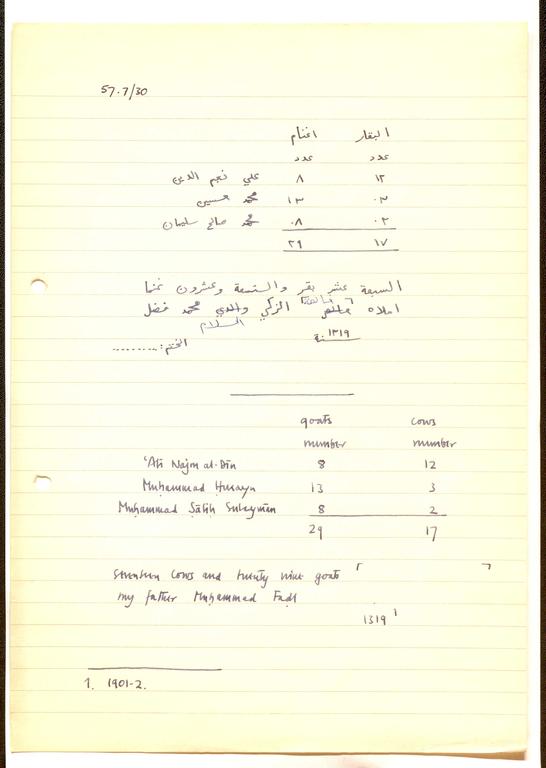 57.7/30
البقار اغنام
عدد عدد
علي نعيم الدين ٨ ١٢
محمد حسين ١٣ ٠٣
محمد صالح سليمان ٠٨ ٠٢
٢٩ ١٧
السبعة عشر بقر والتسعة وعشرون غنما
املاه الزكي والدي محمد فضل
السلام
سنة ١٣١٩
الختم: .........
goats cows
number number
'Ali Najm al-Dīn 8 12
Muḥammad Ḥusayn 13 3
Muḥammad Ṣāliḥ Suleymān 8 2
29 17
seventeen cows and twenty nine goats ⌜ ⌝
my father Muḥammad Faḍl
1319 ¹
1. 1901-2.